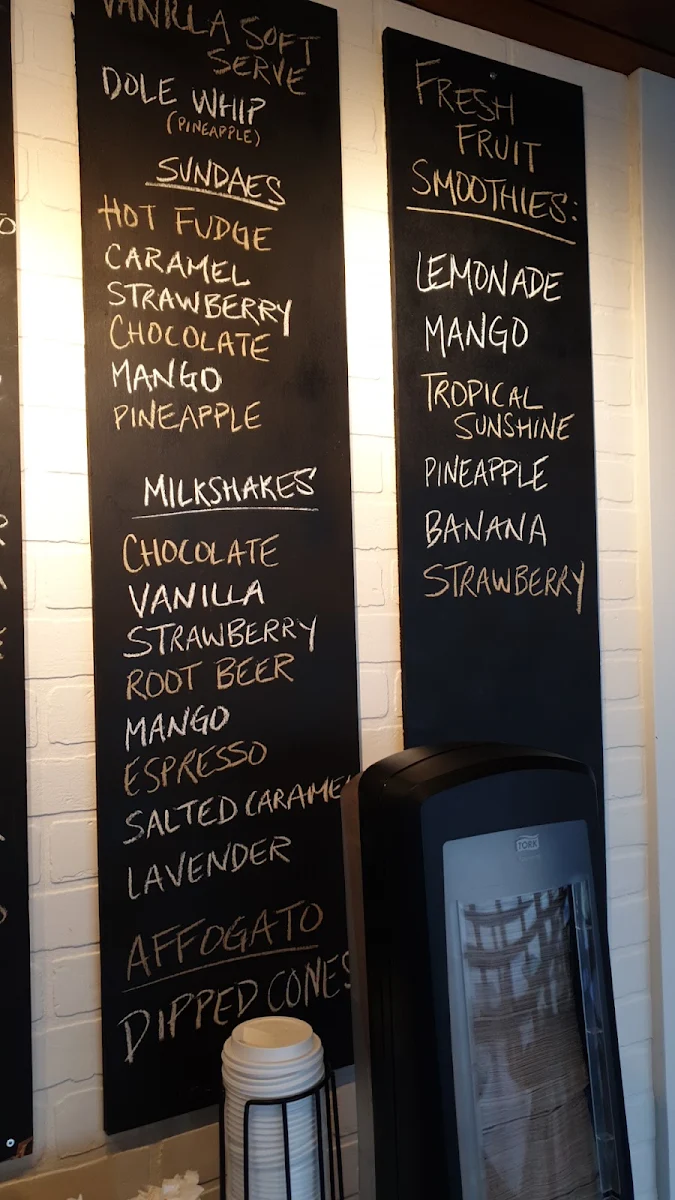 VANILLA SOFT
SERVE
DOLE WHIP
(PINEAPPLE)
SUNDAES
HOT FUDGE
CARAMEL
STRAWBERRY
CHOCOLATE
MANGO
PINEAPPLE
MILKSHAKES
CHOCOLATE
VANILLA
STRAWBERRY
ROOT BEER
MANGO
ESPRESSO
SALTED CARAMEL
LAVENDER
AFFOGATO
DIPPED CONES
FRESH
FRUIT
SMOOTHIES:
LEMONADE
MANGO
TROPICAL
SUNSHINE
PINEAPPLE
BANANA
STRAWBERRY
TORK